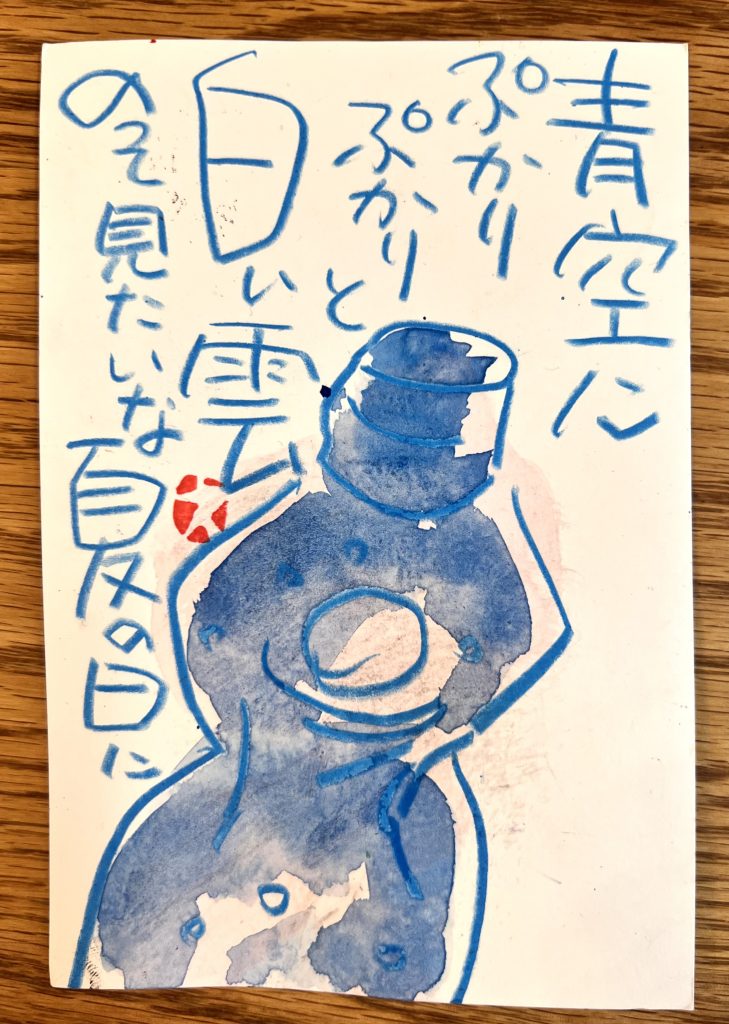 青空に
ぷかり
ぷかりと
白い雲
のって見たいな夏の日に